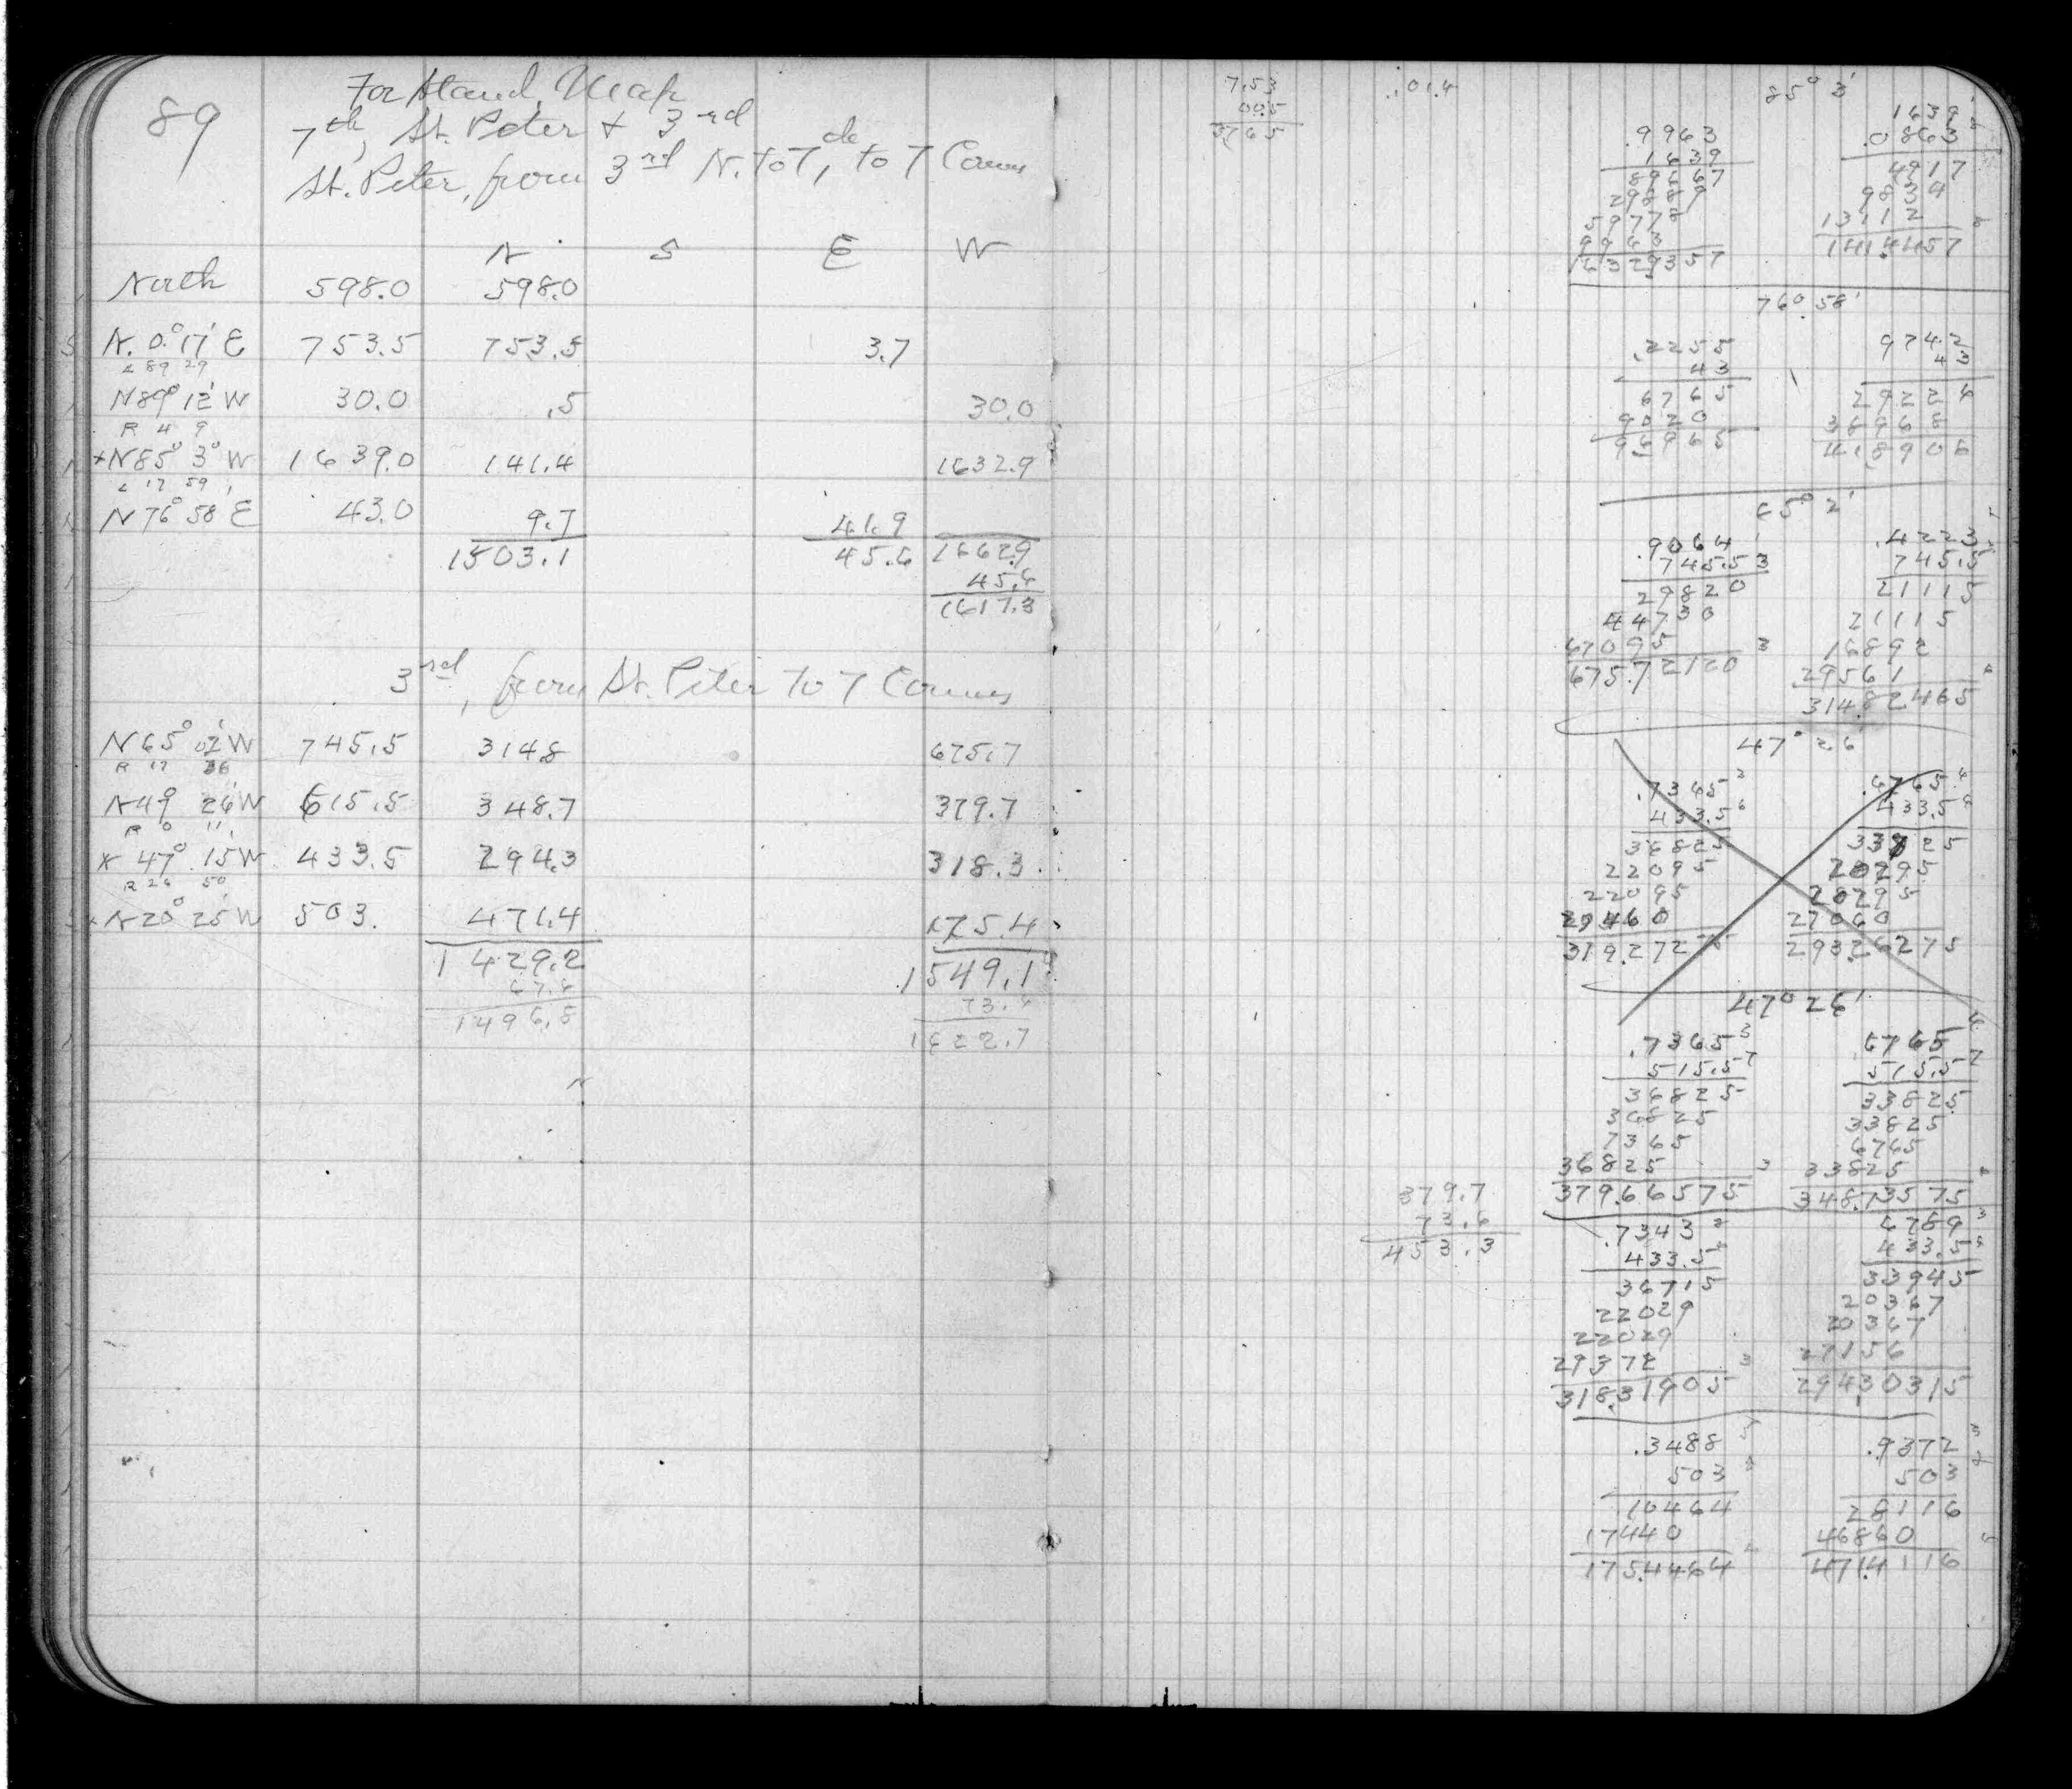 89
For Stand. Map
7th, St. Peter + 3rd
St. Peter, from 3rd N. to 7th, to 7 Corners
N S E W
North 598.0 598.0
N. 0° 17' E 753.5 753.5 3.7
L 89 29
N 89° 12' W 30.0 .5 30.0
R 4 9
+N 85° 3° W 1639.0 141.4 1632.9
L 17 59
N 76° 58' E 43.0 9.7 41.9
1503.1 45.6 1662.9
45.6
1617.3
3rd, from St. Peter to 7 Corners
N 65° 02' W 745.5 314.8 675.7
R 17 36
N 49 26' W 615.5 348.7 379.7
R 0 11
x 47° 15 W 433.5 294.3 318.3
R 26 50
N 20° 25' W 503. 471.4 175.4
1429.2 1549.1
67.6 73.6
1496.8 1622.7
7.53 .01.4
005
3765
379.7
73.6
453.3
85° 3'
.9963 1639
1639 .0863
89667 4917
29889 9834
59778 13112
9963 141.4457
1632.9357
76° 58'
.2255 9742
43 43
6765 29226
9020 38968
96965 418906
65° 2'
.9064 .4223
745.5 745.5
29820 21115
44730 21115
67095 16892
675.72120 29561
31482465
47° 26'
.7365 .6765
433.5 433.5
36825 33825
22095 20295
22095 20295
29460 27060
319.27275 293.26275
47° 26'
.7365 6765
515.5 515.5
36825 33825
36825 33825
7365 6765
36825 33825
379.66575 348.73575
.7343 6789
433.5 433.5
36715 33945
22029 20367
22029 20367
29372 27156
318.31905 294.30315
.3488 .9372
503 503
10464 28116
17440 46860
175.4464 471.4116